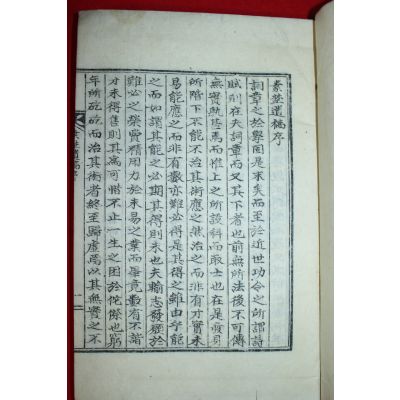 素楚遺稿序
詞章之於學固是末矣而至於近世功令之所謂詩
賦則在夫詞章而又其下者也前無所法後不可傳
無實孰甚焉而惟上之所設科而取士也在是
所階下不能不治其術應之然治之而非有才實未
易能應之而非有數亦難必得是其得之難由乎能
之而如謂其能之必期其得則未也夫輸志發歷於
難必之榮費精用力於未易之業而畢竟數有不諧
才未得售則其爲可惜不止一生之困於佗傺也窮
年所矻矻而治其術者終至歸虛爲以其無實之不